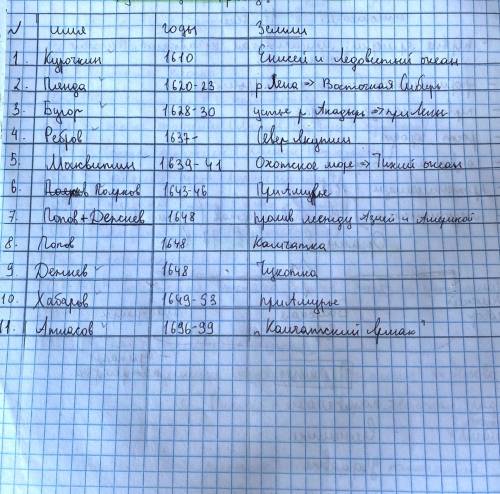 N имя годы Земли
1. Курочкин 1610 Енисей и Ледовитый океан
2. Пянда 1620-23 р Лена => Восточная Сибирь
3. Бугор 1628-30 устье р. => приЛены
4. Ребров 1637- Север Якутии
5. Москвитин 1639-41 Охотское море => Тихий океан
6. Поярков 1643-46 ПриАмурье
7. Попов + Дежнев 1648 пролив между Азией и Америкой
8. Попов 1648 Камчатка
9. Дежнев 1648 Чукотка
10. Хабаров 1649-53 приАмурье
11. Атласов 1696-99 „Камчатский Ермак"